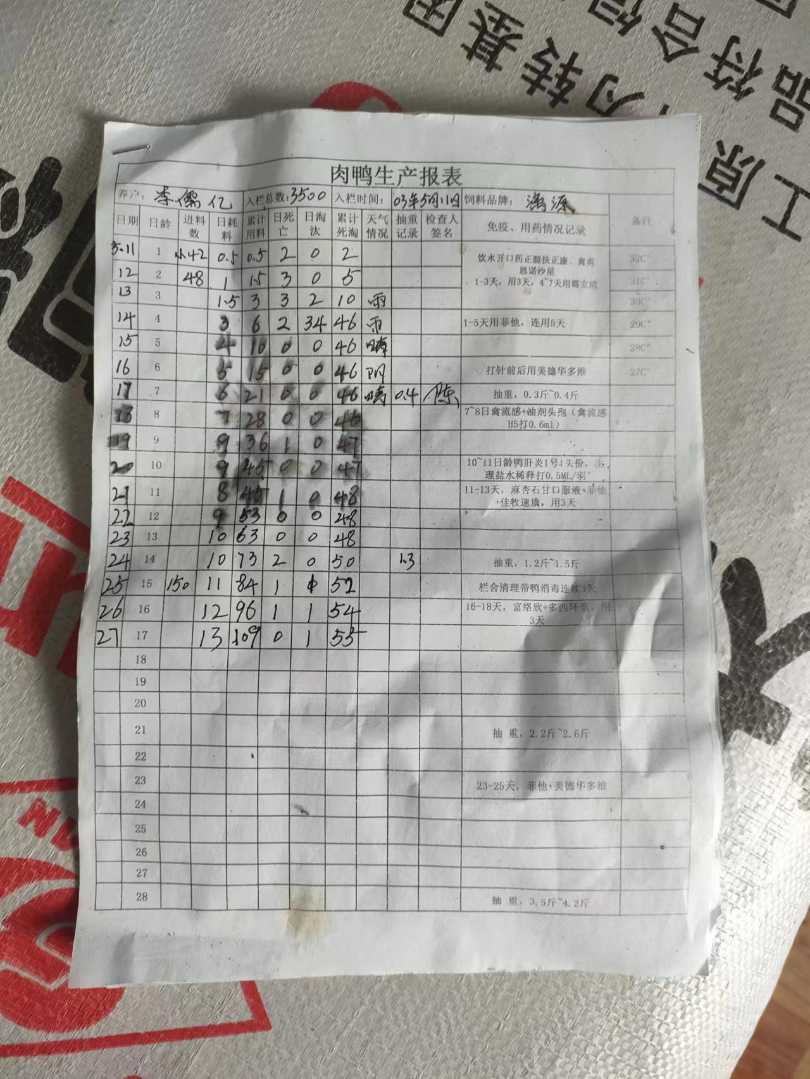 工原
品符合饲
为转基因
肉鸭生产报表
养户: 李儒亿 入栏总数: 3500 入栏时间: 03年5月11日 饲料品牌:
日期 日龄 进料数 日耗料 累计用料 日死亡 日淘汰 累计死淘 天气情况 抽重记录 检查人签名 免疫、用药情况记录 备注
5.11 1 小42 0.5 0.5 2 0 2 饮水开口药正 32C°
恩诺沙星
12 2 48 1 1.5 3 0 5 1-3天, 用3天, 4~7天用 31C°
13 3 1.5 3 3 2 10 雨 30C°
14 4 3 6 2 34 46 雨 1-5天用菲他, 连用5天 29C°
15 5 4 10 0 0 46 晴 28C°
16 6 5 15 0 0 46 阴 打针前后用美德华多维 27C°
17 7 6 21 0 0 46 晴 0.4 陈 抽重, 0.3斤~0.4斤
18 8 7 28 0 0 46 7~8日禽流感+油剂头孢(禽流感H5打0.6ml)
19 9 9 36 1 0 47
20 10 9 45 0 0 47 10~11日龄鸭肝炎1号1头份, 理盐水稀释打0.5ML/羽
21 11 8 45 1 0 48 11-13天, 麻杏石甘口服液+菲他+佳牧速演, 用3天
22 12 9 53 0 0 48
23 13 10 63 0 0 48
24 14 10 73 2 0 50 1.3 抽重, 1.2斤~1.5斤
25 15 150 11 84 1 1 52 栏舍清理带鸭消毒连续3天
26 16 12 96 1 1 54 16-18天, 富络欣+多西环素, 用3天
27 17 13 109 0 1 55
18
19
20
21 抽 重, 2.2斤~2.6斤
22
23 23-25天, 菲他+美德华多维
24
25
26
27
28 抽 重, 3.5斤~4.2斤